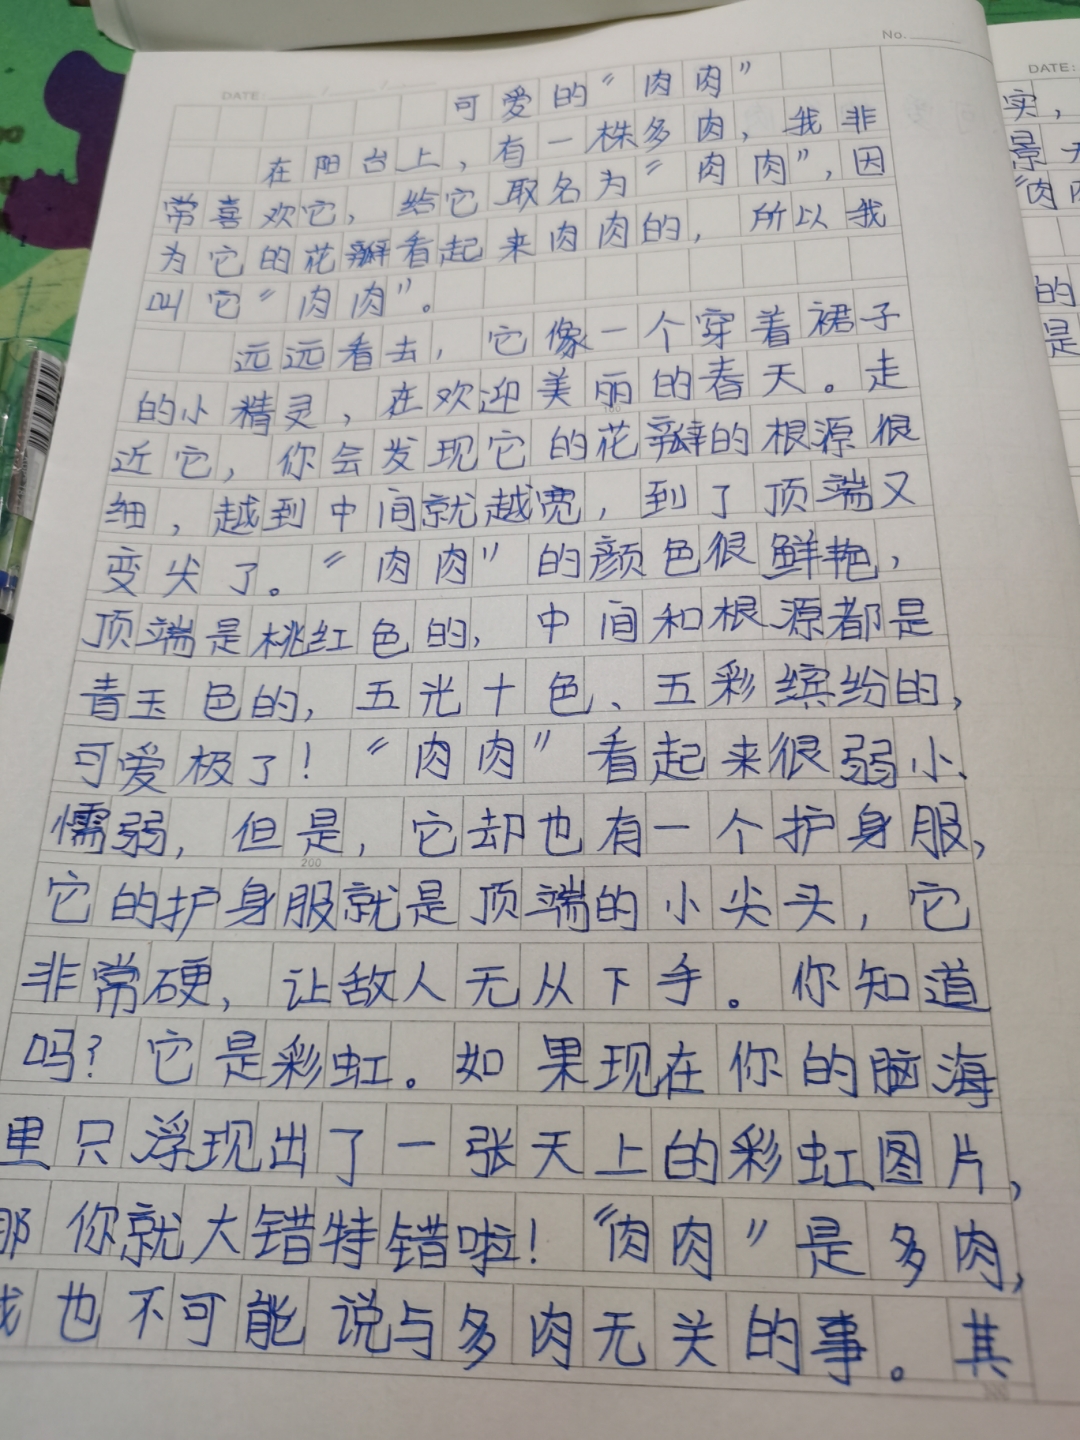 No.
DATE:
可爱的“肉肉”
在阳台上，有一株多肉，我非
常喜欢它，给它取名为“肉肉”，因
为它的花瓣看起来肉肉的，所以我
叫它“肉肉”。
远远看去，它像一个穿着裙子
的小精灵，在欢迎美丽的春天。走
100
近它，你会发现它的花瓣的根源很
细，越到中间就越宽，到了顶端又
变尖了。“肉肉”的颜色很鲜艳，
顶端是桃红色的，中间和根源都是
青玉色的，五光十色、五彩缤纷的，
可爱极了！“肉肉”看起来很弱小、
懦弱，但是，它却也有一个护身服，
200
它的护身服就是顶端的小尖头，它
非常硬，让敌人无从下手。你知道
吗？它是彩虹。如果现在你的脑海
里只浮现出了一张天上的彩虹图片，
那你就大错特错啦！“肉肉”是多肉，
我也不可能说与多肉无关的事。其
300
DATE:
实，
景
“肉
的
是